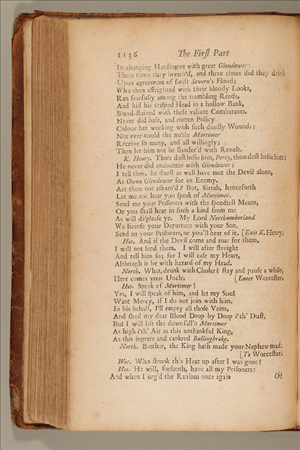 1136 The First Part
In changing Hardiment with great Glendower:
Three times they breath'd, and three times did they drink
Upon agreement of swift Severn's Flood;
Who then affrighted with their bloody Looks,
Ran fearfully among the trembling Reeds,
And hid his crisped Head in a hollow Bank,
Blood-stained with these valiant Combatants.
Never did base, and rotten Policy
Colour her working with such deadly Wounds;
Nor ever could the noble Mortimer
Receive so many, and all willingly;
Then let him not be slander'd with Revolt.
K. Henry. Thou dost belie him, Percy, thou dost belie him;
He never did encounter with Glendower;
I tell thee, he durst as well have met the Devil alone,
As Owen Glendower for an Enemy.
Art thou not asham'd? But, Sirrah, henceforth
Let me not hear you speak of Mortimer.
Send me your Prisoners with the speediest Means,
Or you shall hear in such a kind from me
As will displease ye. My Lord Northumberland
We license your Departure with your Son.
Send us your Prisoners, or you'll hear of it. [Exit K. Henry.
Hot. And if the Devil come and roar for them,
I will not send them. I will after streight
And tell him so; for I will ease my Heart,
Although it be with hazard of my Head.
North. What, drunk with Choler? stay and pause a while,
Here comes your Uncle. [Enter Worcester.
Hot. Speak of Mortimer?
Yes, I will speak of him, and let my Soul
Want Mercy, if I do not join with him.
In his behalf, I'll empty all those Veins,
And shed my dear Blood Drop by Drop i'th' Dust,
But I will lift the downfall'n Mortimer
As high i'th' Air as this unthankful King,
As this ingrate and cankred Bullingbroke.
North. Brother, the King hath made your Nephew mad.
[To Worcester.
Wor. Who strook this Heat up after I was gone?
Hot. He will, forsooth, have all my Prisoners:
And when I urg'd the Ransom once again
Of